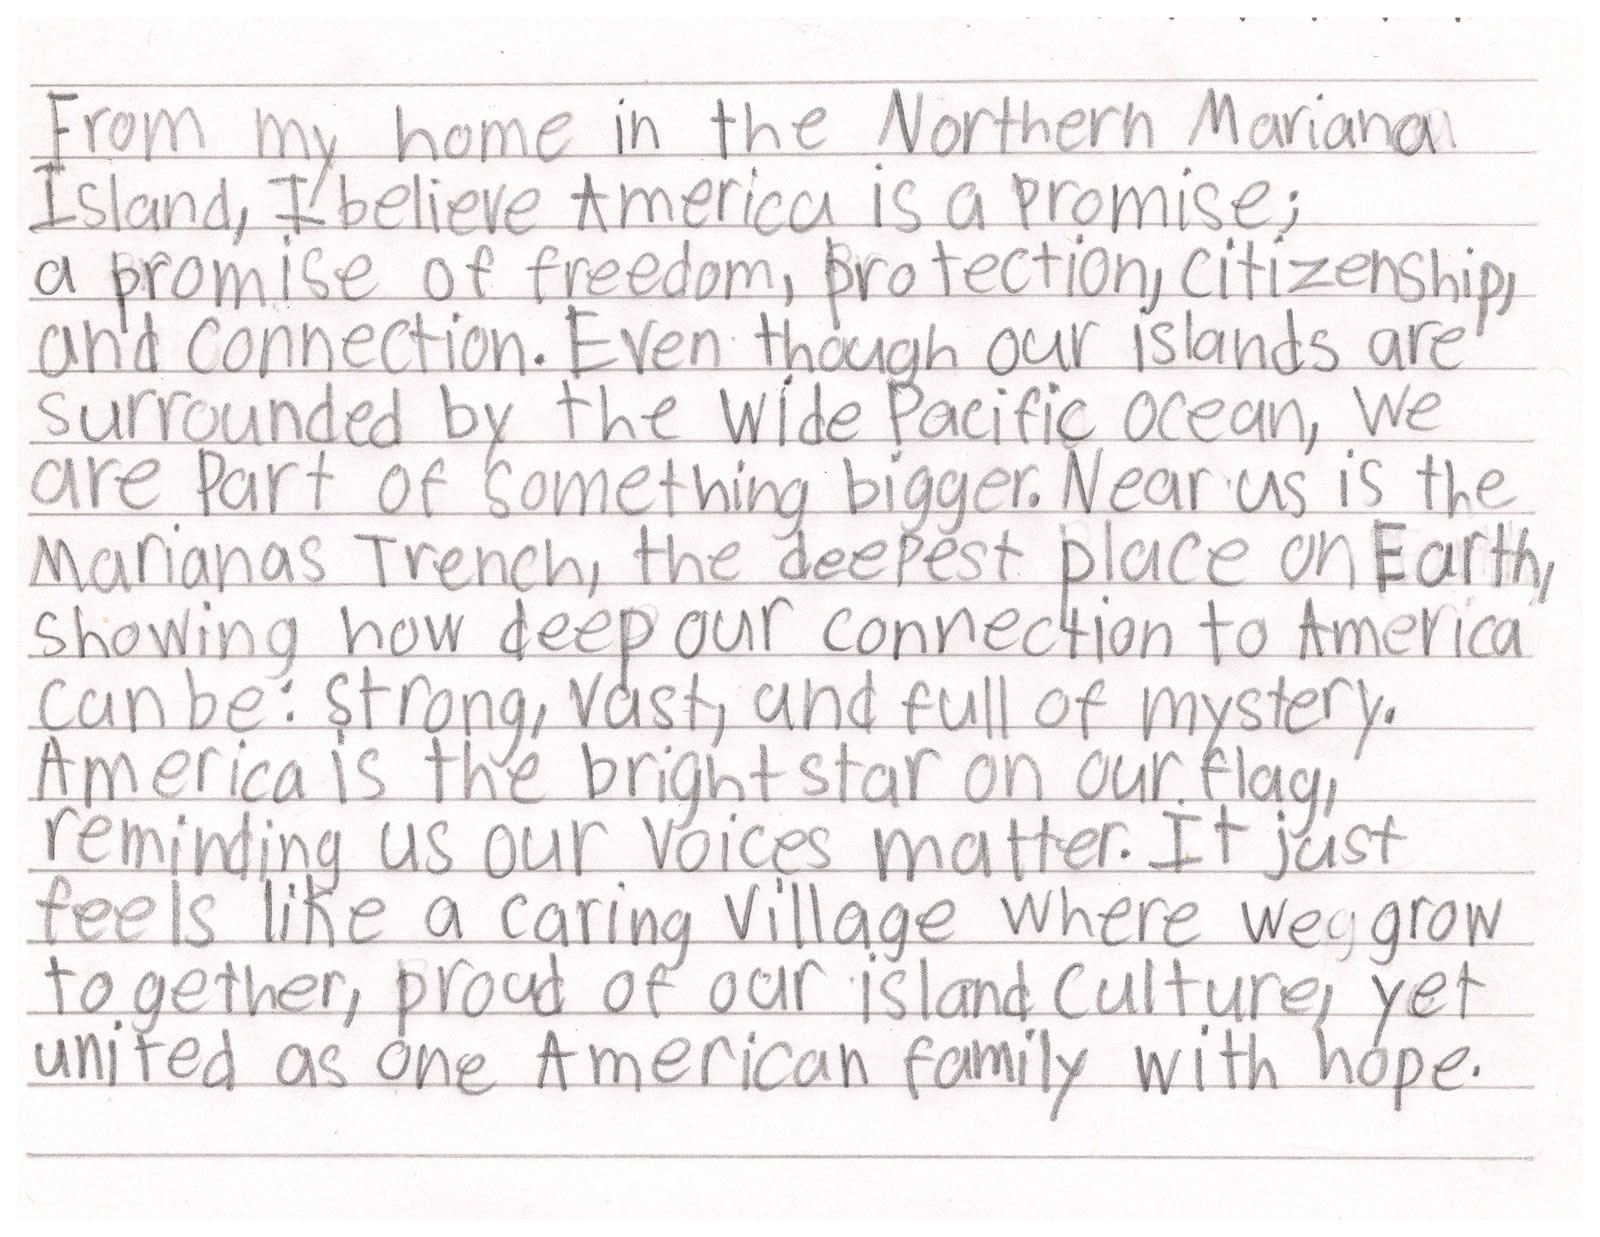 From my home in the Northern Mariana
Island, I believe America is a promise;
a promise of freedom, protection, citizenship,
and connection. Even though our islands are
surrounded by the wide Pacific ocean, we
are part of something bigger. Near us is the
Marianas Trench, the deepest place on Earth,
showing how deep our connection to America
can be: strong, vast, and full of mystery.
America is the bright star on our flag,
reminding us our voices matter. It just
feels like a caring village where we grow
together, proud of our island culture, yet
united as one American family with hope.